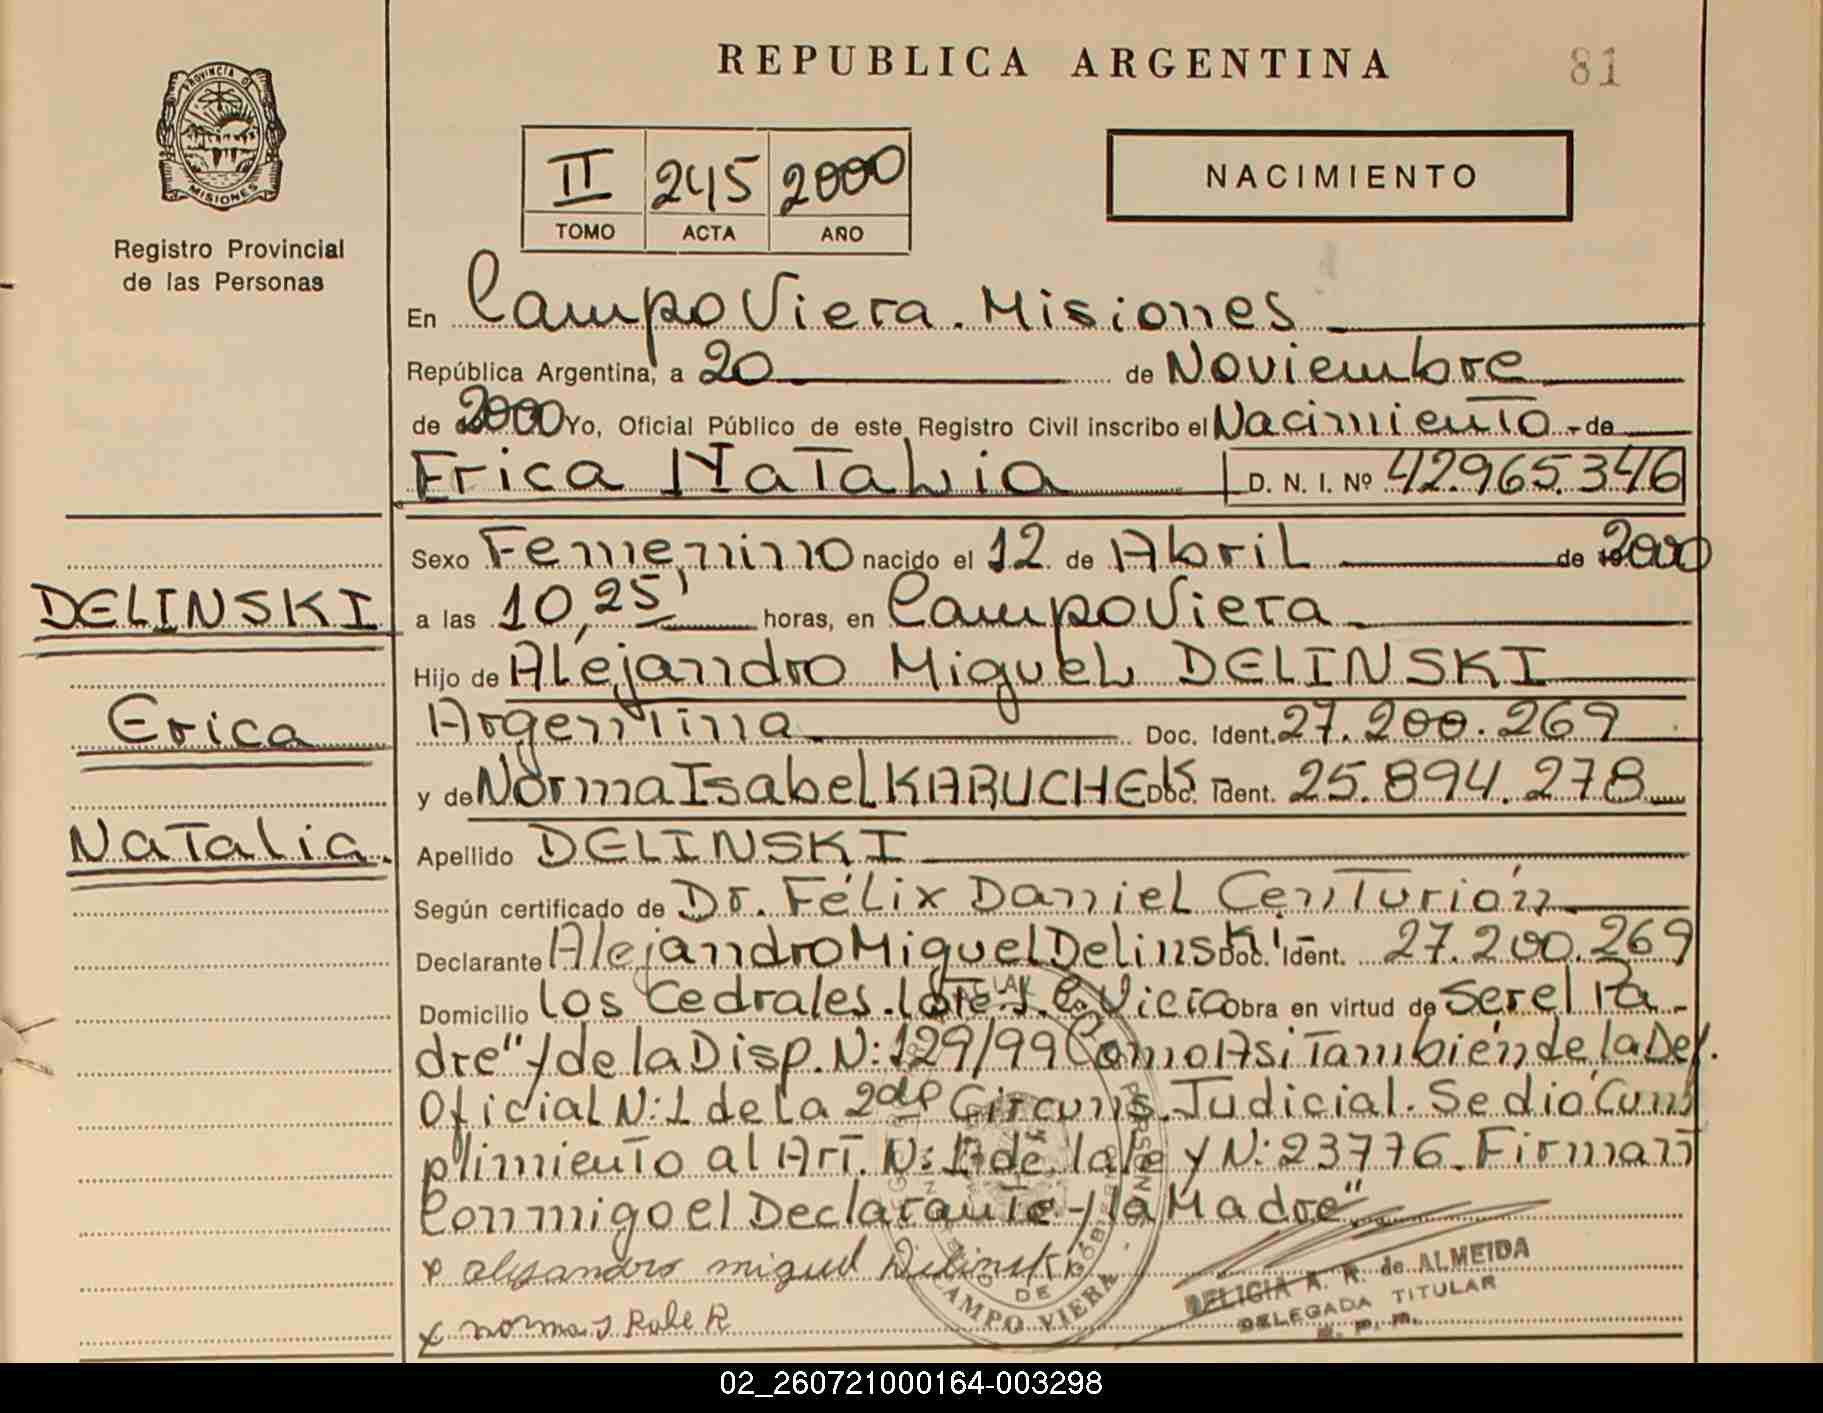 REPUBLICA ARGENTINA
81
PROVINCIA DE
MISIONES
Registro Provincial
de las Personas
II 245 2000
TOMO ACTA AÑO
NACIMIENTO
En Campo Viera. Misiones
República Argentina, a 20 de Noviembre
de 2000 Yo, Oficial Público de este Registro Civil inscribo el Nacimiento - de
Erica Natalia D. N. I. Nº 42.965.346
Sexo Femenino nacido el 12 de Abril de 2000
DELINSKI
a las 10,25' horas, en Campo Viera
Hijo de Alejandro Miguel DELINSKI
Erica
Argentina Doc. Ident. 27.200.269
y de Norma Isabel KABUCHEK Doc. Ident. 25.894.278
Natalia.
Apellido DELINSKI
Según certificado de Dr. Félix Daniel Centurión
Declarante Alejandro Miguel Delinski Doc. Ident. 27.200.269
Domicilio Los Cedrales. Lote 1. C. Viera Obra en virtud de ser el Pa-
dre" y de la Disp. N: 129/99 Como Asi También de la Def.
Oficial N: 1 de la 2da Circuns. Judicial. Se dió Cum
plimiento al Art. N: de la ley N: 23776. Firman
Conmigo el Declarante y la Madre"
x alejandro miguel Delinski
x norma I
CAMPO VIERA
DELIGIA A. R. de ALMEIDA
DELEGADA TITULAR
R. P. P.
02_260721000164-003298